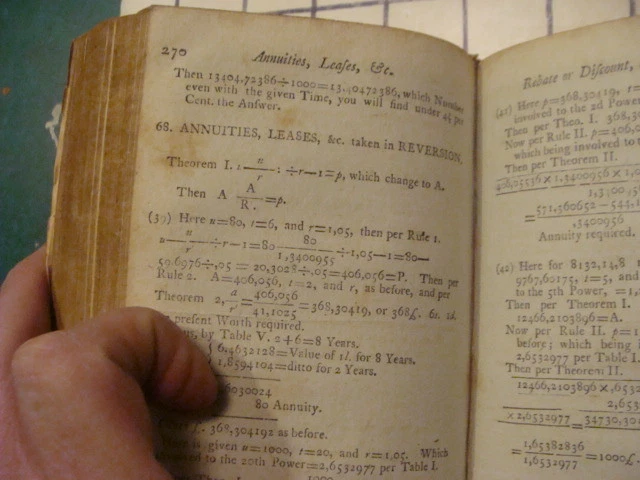 270
Annuities, Leases, &c.
Then 13404,72386÷1000=13,40472386, which Number
even with the given Time, you will find under 4½ per
Cent. the Answer.
68. ANNUITIES, LEASES, &c. taken in REVERSION.
Theorem I. u— u/r : ÷r—1=p, which change to A.
Then A A/R. =p.
(39) Here u=80, t=6, and r=1,05, then per Rule 1.
u— u/r ÷r—1=80— 80/1,3400955 ÷1,05—1=80—
59,6976÷,05=20,3028÷,05=406,056=P. Then per
Rule 2. A=406,056, t=2, and r, as before, and per
Theorem 2, a/r 406,056/41,1025 =368,30419, or 368£. 6s.
present Worth required.
by Table V. 2+6=8 Years.
{ 6,4632128=Value of 1l. for 8 Years.
1,8594104=ditto for 2 Years.
6030024
80 Annuity.
368,304192 as before.
is given u=1000, t=20, and r=1,05. Which
to the 20th Power=2,6532977 per Table I.
Rebate or Discount,
(41) Here p=368,30419, t=
involved to the 2d Power
Then per Theo. I. 368,30
Now per Rule II. p=406,0
which being involved to
Then per Theorem II.
406,05536×1,3400956×1,0
1,3400
= 571,360652—544,1
,3400956
Annuity required.
(42) Here for 8132,14,8
9767,60175, t=5, and
to the 5th Power, =1,
Then per Theorem I.
12466,2103896=A.
Now per Rule II. p=1
before; which being i
2,6532977 per Table I.
Then per Theorem II.
12466,2103896×,6532
2,653
×2,6532977= 34730,30
= 1,65382836/1,6532977 =1000£.